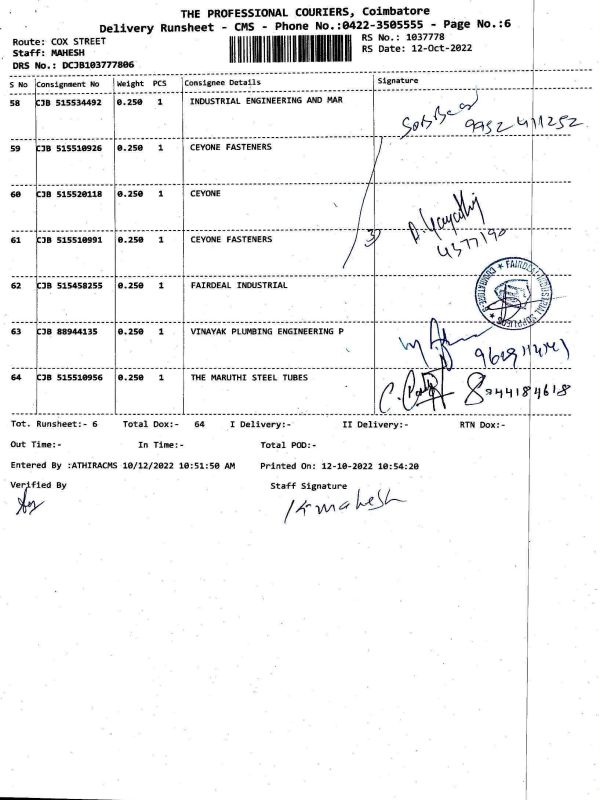 THE PROFESSIONAL COURIERS, Coimbatore
Delivery Runsheet - CMS - Phone No.:0422-3505555 - Page No.:6
Route: COX STREET
RS No.: 1037778
Staff: MAHESH
RS Date: 12-Oct-2022
DRS No.: DCJB103777806
S No Consignment No Weight PCS Consignee Details Signature
58 CJB 515534492 0.250 1 INDUSTRIAL ENGINEERING AND MAR
9952 411252
59 CJB 515510926 0.250 1 CEYONE FASTENERS
60 CJB 515520118 0.250 1 CEYONE
61 CJB 515510991 0.250 1 CEYONE FASTENERS
3
62 CJB 515458255 0.250 1 FAIRDEAL INDUSTRIAL
FAIRDEAL INDUSTRIAL SUPPLIERS
COIMBATORE
63 CJB 88944135 0.250 1 VINAYAK PLUMBING ENGINEERING P
64 CJB 515510956 0.250 1 THE MARUTHI STEEL TUBES
Tot. Runsheet:- 6 Total Dox:- 64 I Delivery:- II Delivery:- RTN Dox:-
Out Time:- In Time:- Total POD:-
Entered By :ATHIRACMS 10/12/2022 10:51:50 AM Printed On: 12-10-2022 10:54:20
Verified By Staff Signature
K mahesh